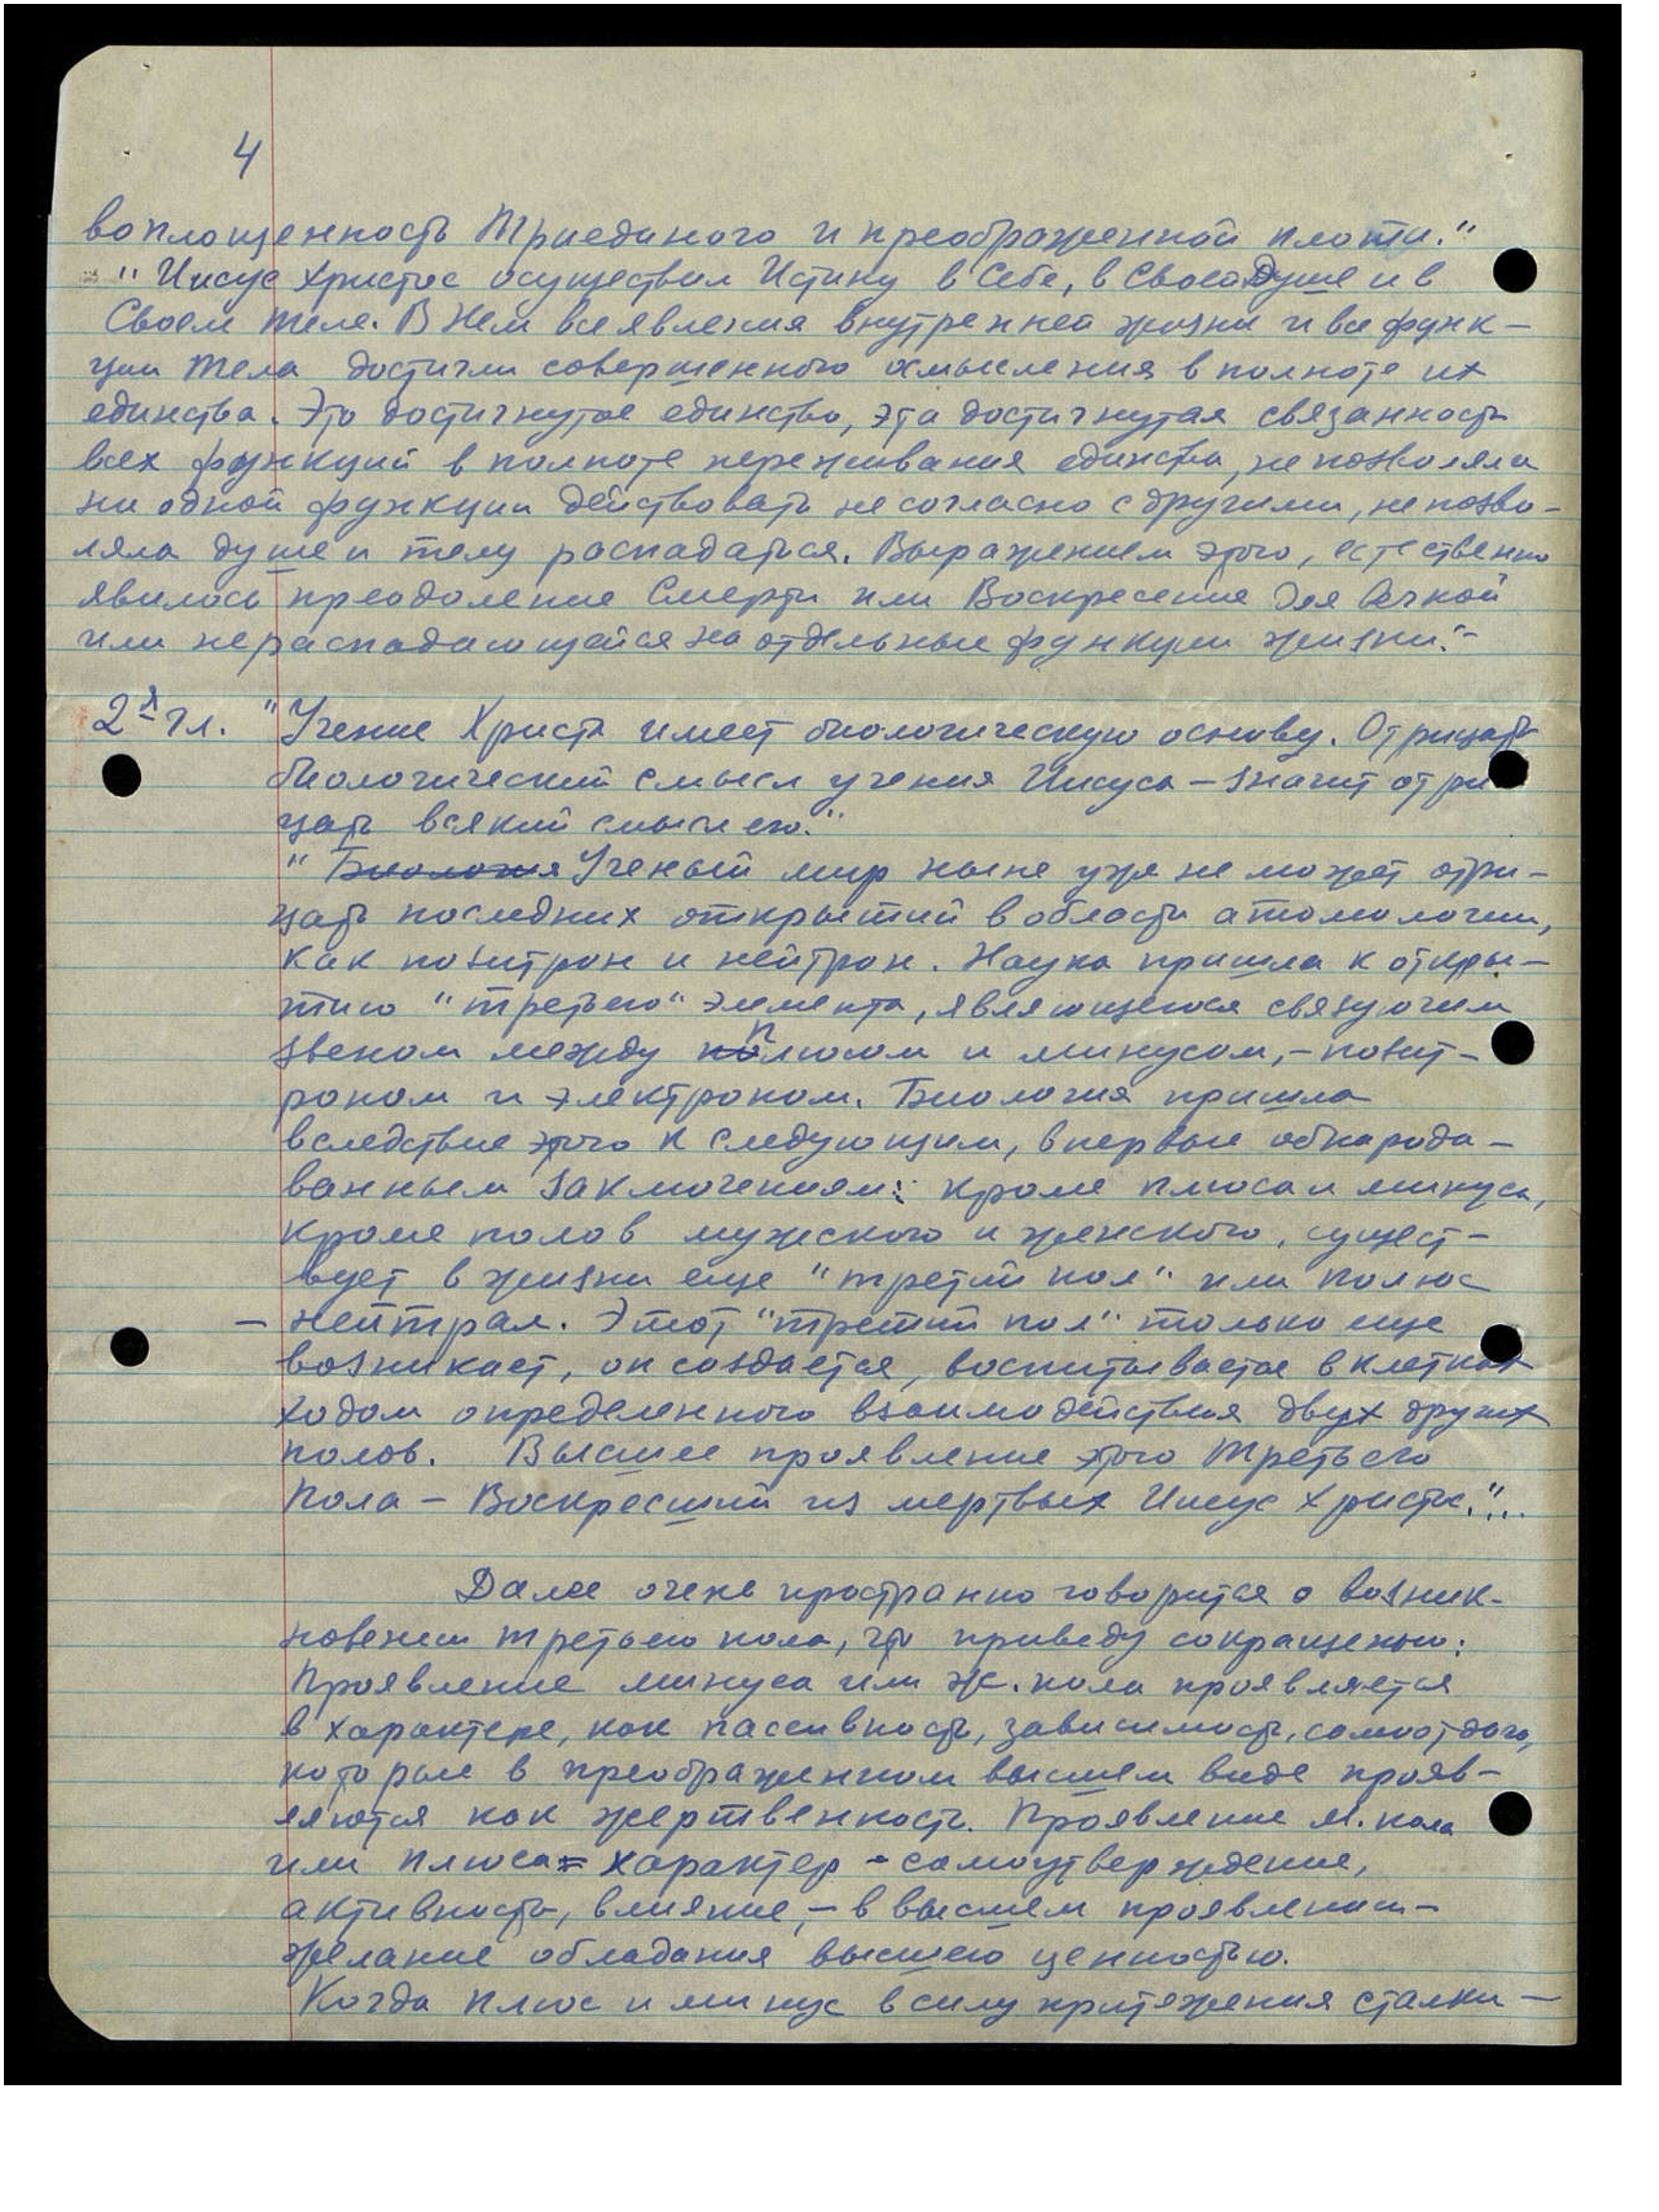 4
воплощенность Триединого и преображенной плоти."
"Иисус Христос осуществил Истину в Себе, в Своей Душе и в
Своем теле. В Нем все явления внутренней жизни и все функ-
ции тела достигли совершенного осмысления в полноте их
единства. Это достигнутое единство, эта достигнутая связанность
всех функций в полноте переживания единства, не позволяла
ни одной функции действовать несогласно с другими, не позво-
ляла душе и телу распадаться. Выражением этого, естественно
явилось преодоление Смерти или Воскресение для Вечной
или нераспадающейся на отдельные функции жизни."
2я гл. "Учение Христа имеет биологическую основу. Отрицать
биологический смысл учения Иисуса – значит отри
цать всякий смысл его."
"Биология Ученый мир ныне уже не может отри-
цать последних открытий в области атомологии,
как позитрон и нейтрон. Наука пришла к откры-
тию "третьего" элемента, являющегося связующим
звеном между плюсом и минусом, – позит-
роном и электроном. Биология пришла
вследствие этого к следующим, впервые обнародо-
ванным заключениям: кроме плюса и минуса,
кроме полов мужского и женского, сущест-
вует в жизни еще "третий пол" или полюс
– нейтрал. Этот "третий пол" только еще
возникает, он создается, воспитывается в клетках
ходом определенного взаимодействия двух других
полов. Высшее проявление этого Третьего
Пола – Воскресший из мертвых Иисус Христос."...
Далее очень пространно говорится о возник-
новении третьего пола, что приведу сокращенно:
Проявление минуса или ж. пола проявляется
в характере, как пассивность, зависимость, самоотдача,
которые в преображенном высшем виде прояв-
ляются как жертвенность. Проявление м. пола
или плюса = характер – самоутверждение,
активность, влияние, – в высшем проявлении –
желание обладания высшею ценностью.
Когда плюс и минус в силу притяжения сталки –